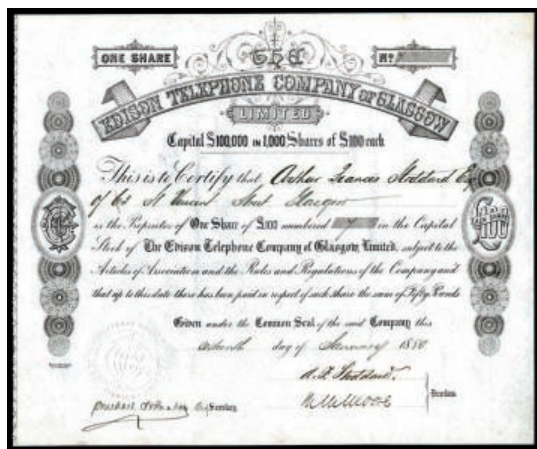 ONE SHARE
Nº
EDISON TELEPHONE COMPANY OF GLASGOW
LIMITED
Capital £100,000 IN 1,000 Shares of £100 each
This is to Certify that Arthur Francis Stoddard Esq
of 63 St Vincent Street Glasgow
is the Proprietor of One Share of £100 numbered 7 in the Capital
Stock of The Edison Telephone Company of Glasgow, Limited, subject to the
Articles of Association and the Rules and Regulations of the Company and
that up to this date there has been paid in respect of such share the sum of Fifty Pounds
Given under the Common Seal of the said Company this
day of January 1880
A. F. Stoddard.
Directors
Secretary
£100